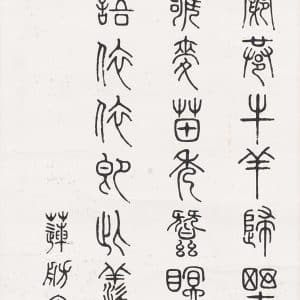 巷牛羊歸
雊麥苗秀蠶眠
語依依即此羨
蓮舫